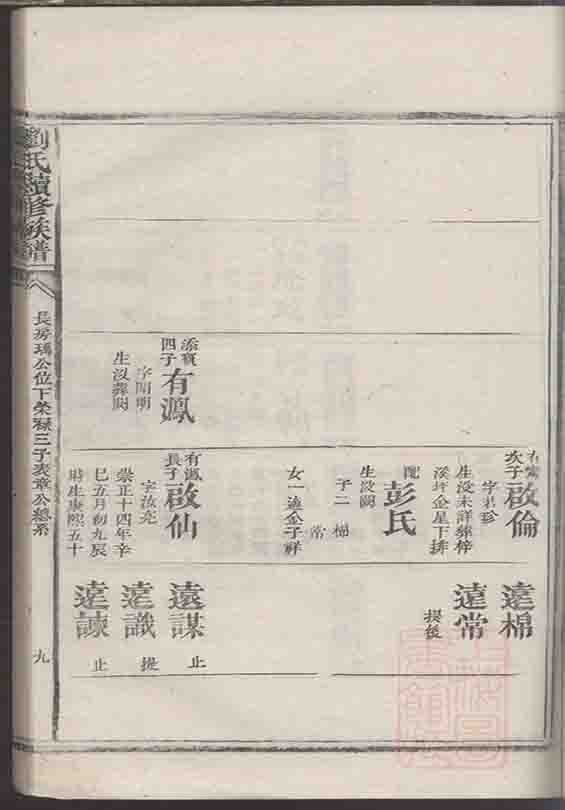 劉氏續修族譜
長房瑀公位下榮祿三子表章公總系
九
添寶
四子
有鳳
字開明
生沒葬闕
次子
啟倫
字君珍
生没未詳葬梓
溪坪金星下排
配
彭氏
生没闕
子二 棉
常
女一適金子祥
有鳳
長子
啟仙
字汝堯
崇正十四年辛
巳五月初九辰
時生康熙五十
遠棉
遠常
提後
遠謀 止
遠識 提
遠諫 止
上海圖書館藏